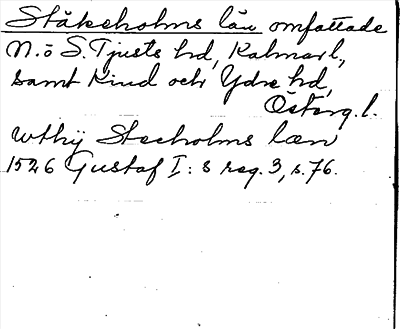 Stäkeholms län omfattade
N. o S. Tjusts hd, Kalmar l.,
samt Kind och Ydre hd,
Österg. l.
wthij Steeholms læn
1526 Gustaf I: s reg. 3, s. 76.